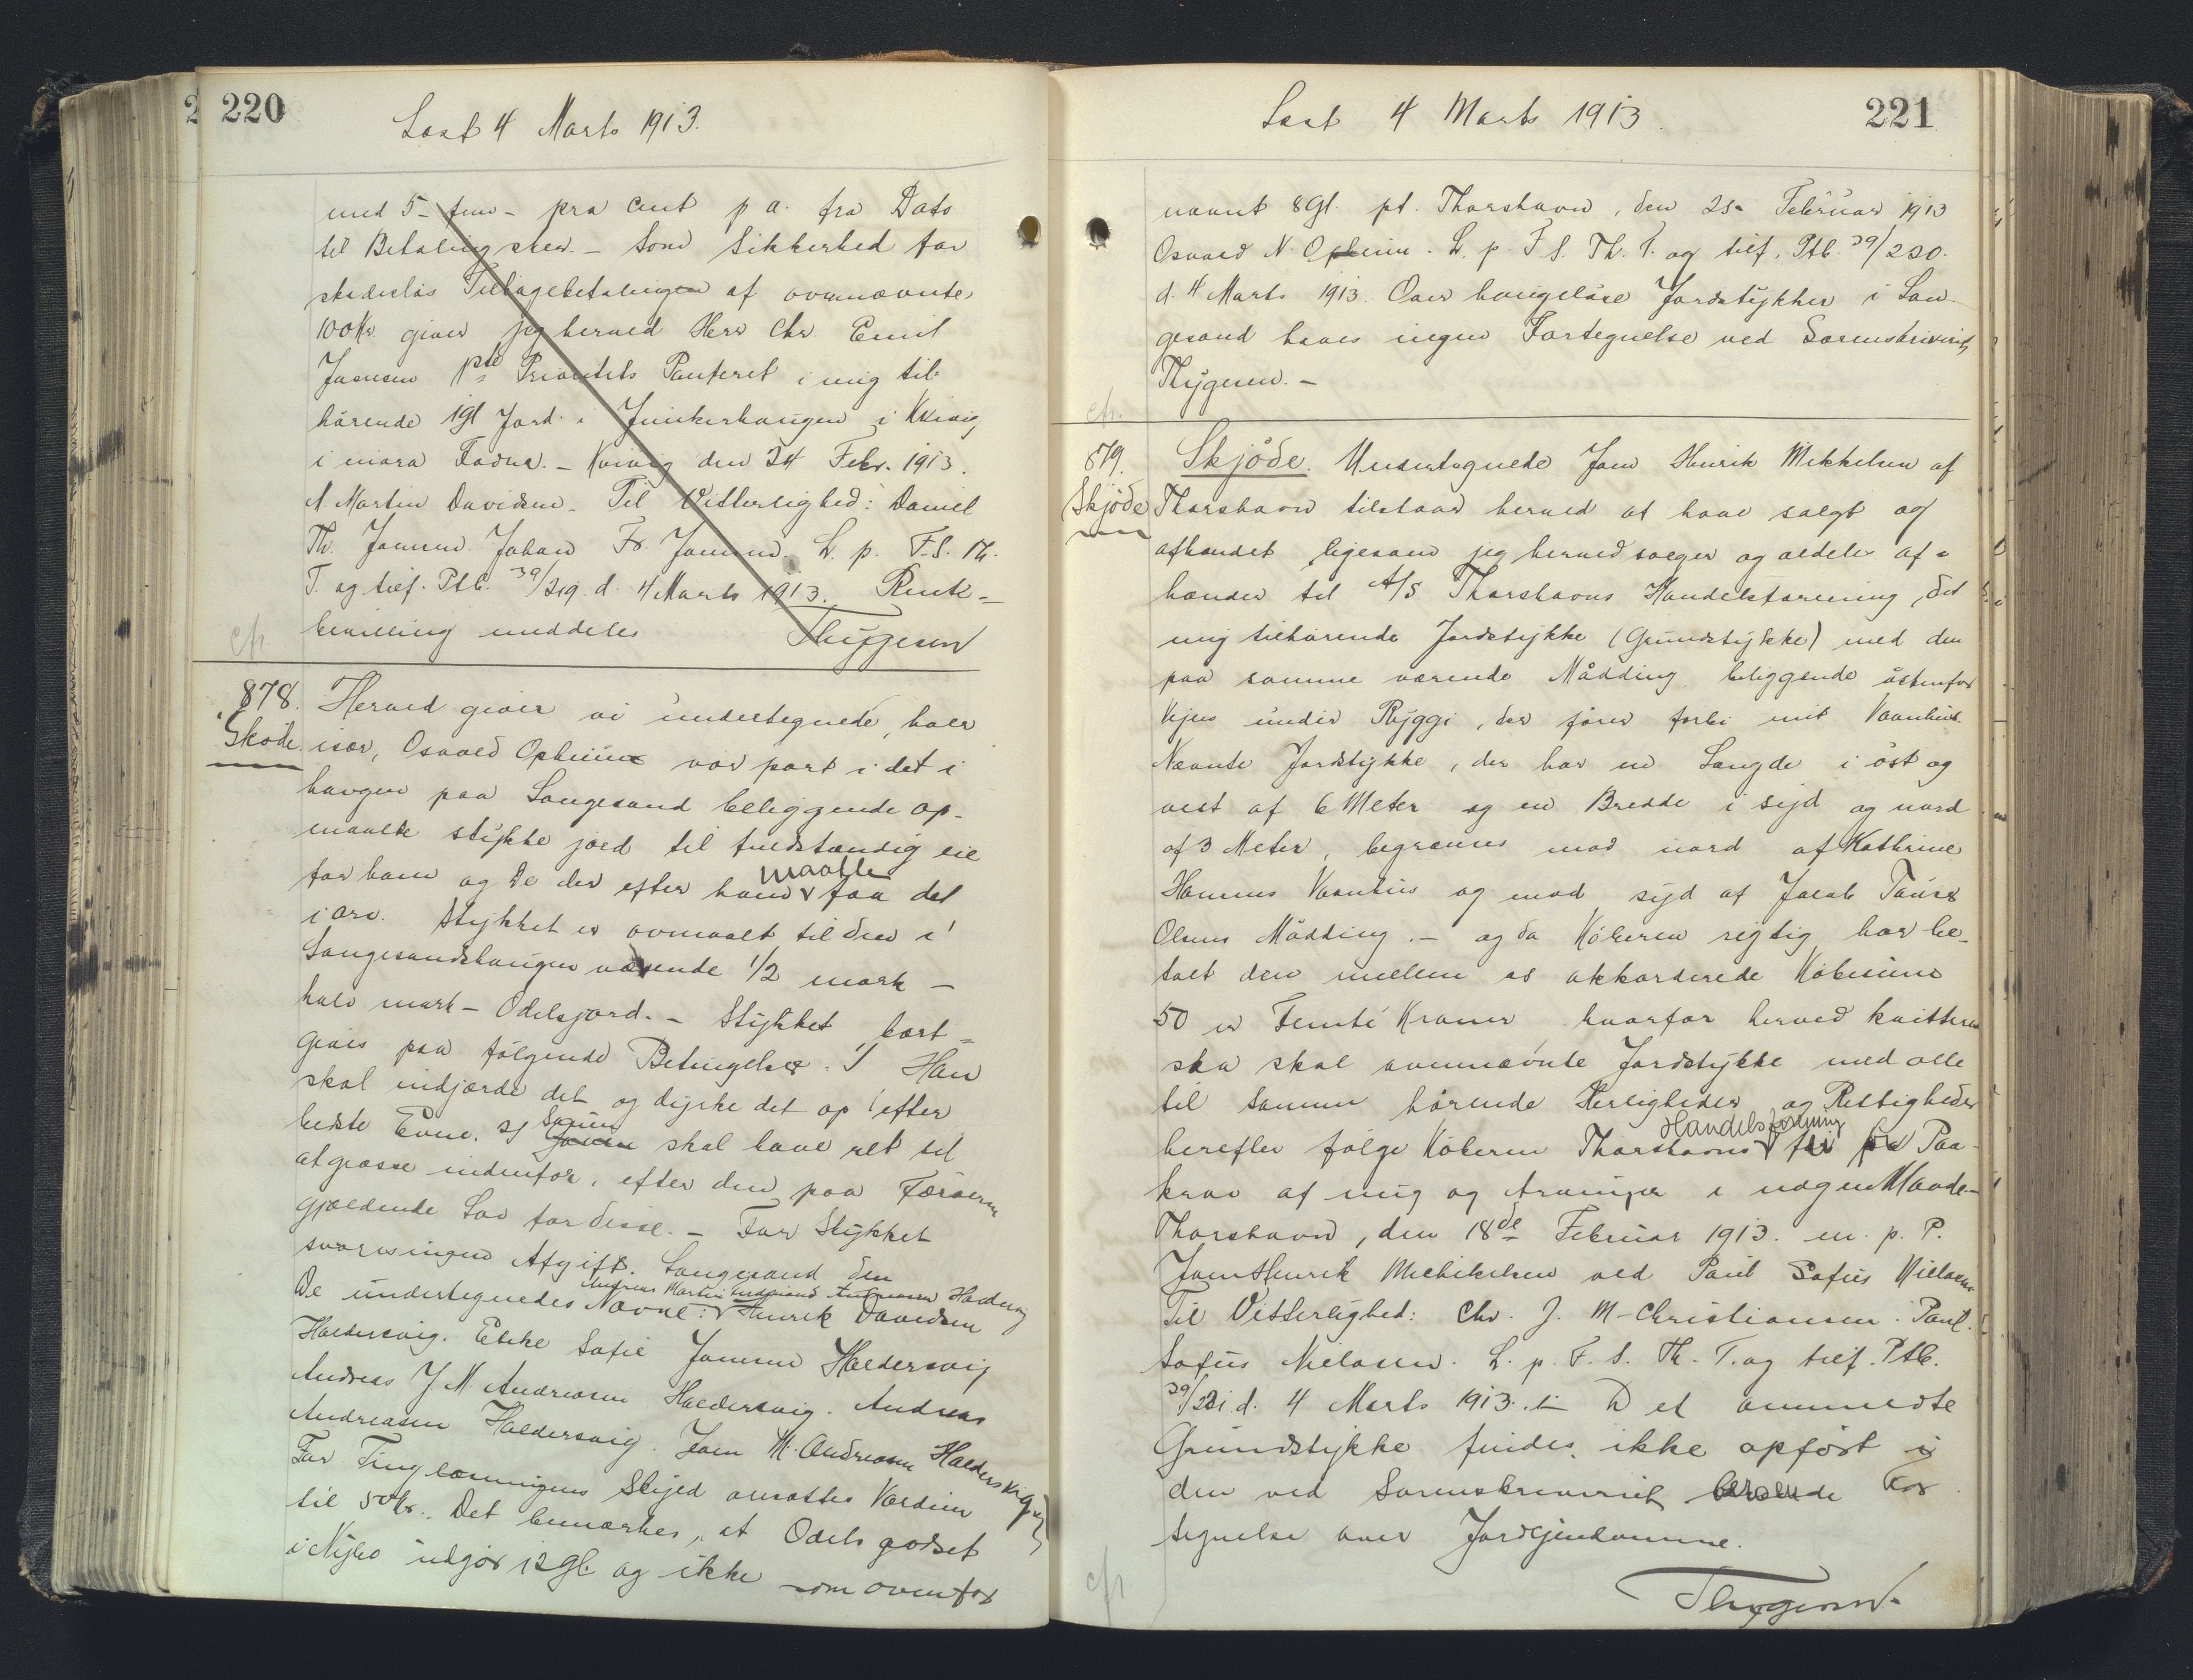 220
Læst 4 Marts 1913.
med 5 - fem - pro Cent p a. fra Dato
til Betaling sker. - Som Sikkerhed for
skadeslös Tilbagebetalingen af ovennævnte
100 Kr. giver jeg herved Herr Chr. Emil
Joensen 1ste Prioritets Panteret i mig til
hörende 1 gl Jord i Junkerhaugen i Kvivig
i mara Fadua. - Kvivig den 24 Febr. 1913.
M. Martin Davidsen. Til Vitterlighed: Daniel
Th. Joensen. Johan Fr. Joensen. L. p. F. S. Th.
T. og tilf. Ptb. 39/219. d. 4 Marts 1913. Rente-
bevilling meddeles Thygesen
cfr
878.
Sköde
Herved giver vi undertegnede, hver
især, Osvald Opheim vor part i det i
haugen paa Langesand beliggende op-
maalte stykke jord til fuldstændig eie
for ham og de der efter ham maatte faa det
i arv. Stykket er avmaalt til den i
Langesandshaugen værende 1/2 mark -
halv mark - Odelsjord. - Stykket bort=
gives paa fölgende Betingelser. 1 Han
skal indjærde det og dyrke det op efter
bedste Evne. 2 skal have ret til
at græsse indenfor, efter den paa Færöerne
gjældende Lov for disse. - For Stykket
svares ingen Afgift. Langesand den
De undertegnedes Navne: Andreas Martin Ferdinand Andreasen Haldersvig
Henrik Davidsen
Haldersvig. Elske Sofie Joensen Haldersvig
Andreas J M Andreasen Haldersvig. Andreas
Andreasen Haldersvig. Joen M. Andreasen Haldersvig
For Tinglæsningens Skyld ansættes Værdien
til 50 Kr. Det bemærkes, at Odels godset
i Nybo udgjör 12 gl. og ikke som ovenfor
Læst 4 Marts 1913.
221
nævnt 8 gl. pt. Thorshavn, den 25. Februar 1913
Osvald N. Opheim. L. p. F S. Th. T. og tilf. Ptb. 39/220.
d. 4 Marts 1913. Over haugeløse Jordstykker i Lan
gesand haves ingen Fortegnelse ved Sorenskriveriet
Thygesen. -
cfr.
879.
Skjöde
Skjöde. Undertegnede Joen Henrik Mikkelsen af
Thorshavn tilstaar herved at have solgt og
afhændet ligesom jeg herved sælger og aldeles af=
hænder til A/S Thorshavns Handelsforening, det
mig tilhörende Jordstykke (Grundstykke) med den
paa samme værende Mödding beliggende östenfor
Vejen under Ryggi, der förer forbi mit Vaanhus.
Nævnte Jordstykke, der har en Længde i öst og
vest af 6 Meter og en Bredde i syd og nord
af 3 Meter, begrænses mod nord af Kathrine
Hannus Vaanhus og mod syd af Jacob
Olsens Mödding. - og da Köberen rigtig har be-
talt den mellem os akkorderede Köbesum
50 er Femti Kroner hvorfor herved kvitteres
saa skal ovennævnte Jordstykke med alle
til samme hörende Herligheder og Rettigheder
herefter fölge Köberen Thorshavns Handelsforening fri for Paa-
krav af mig og Arvinger i nogen Maade.
Thorshavn, den 18de Februar 1913. m. p. P.
Joen Henrik Mikkelsen ved Paul Sofus Nielsen.
Til Vitterlighed: Chr. J. M-Christiansen. Paul.
Sofus Nielsen. L. p. F. S. Th. T. og tilf. Ptb.
39/221. d. 4 Marts 1913. - Det ommeldte
Grundstykke findes ikke opfört i
den ved Sorenskriveriet beroende For
tegnelse over Jordejendomme.
Thygesen.
cfr